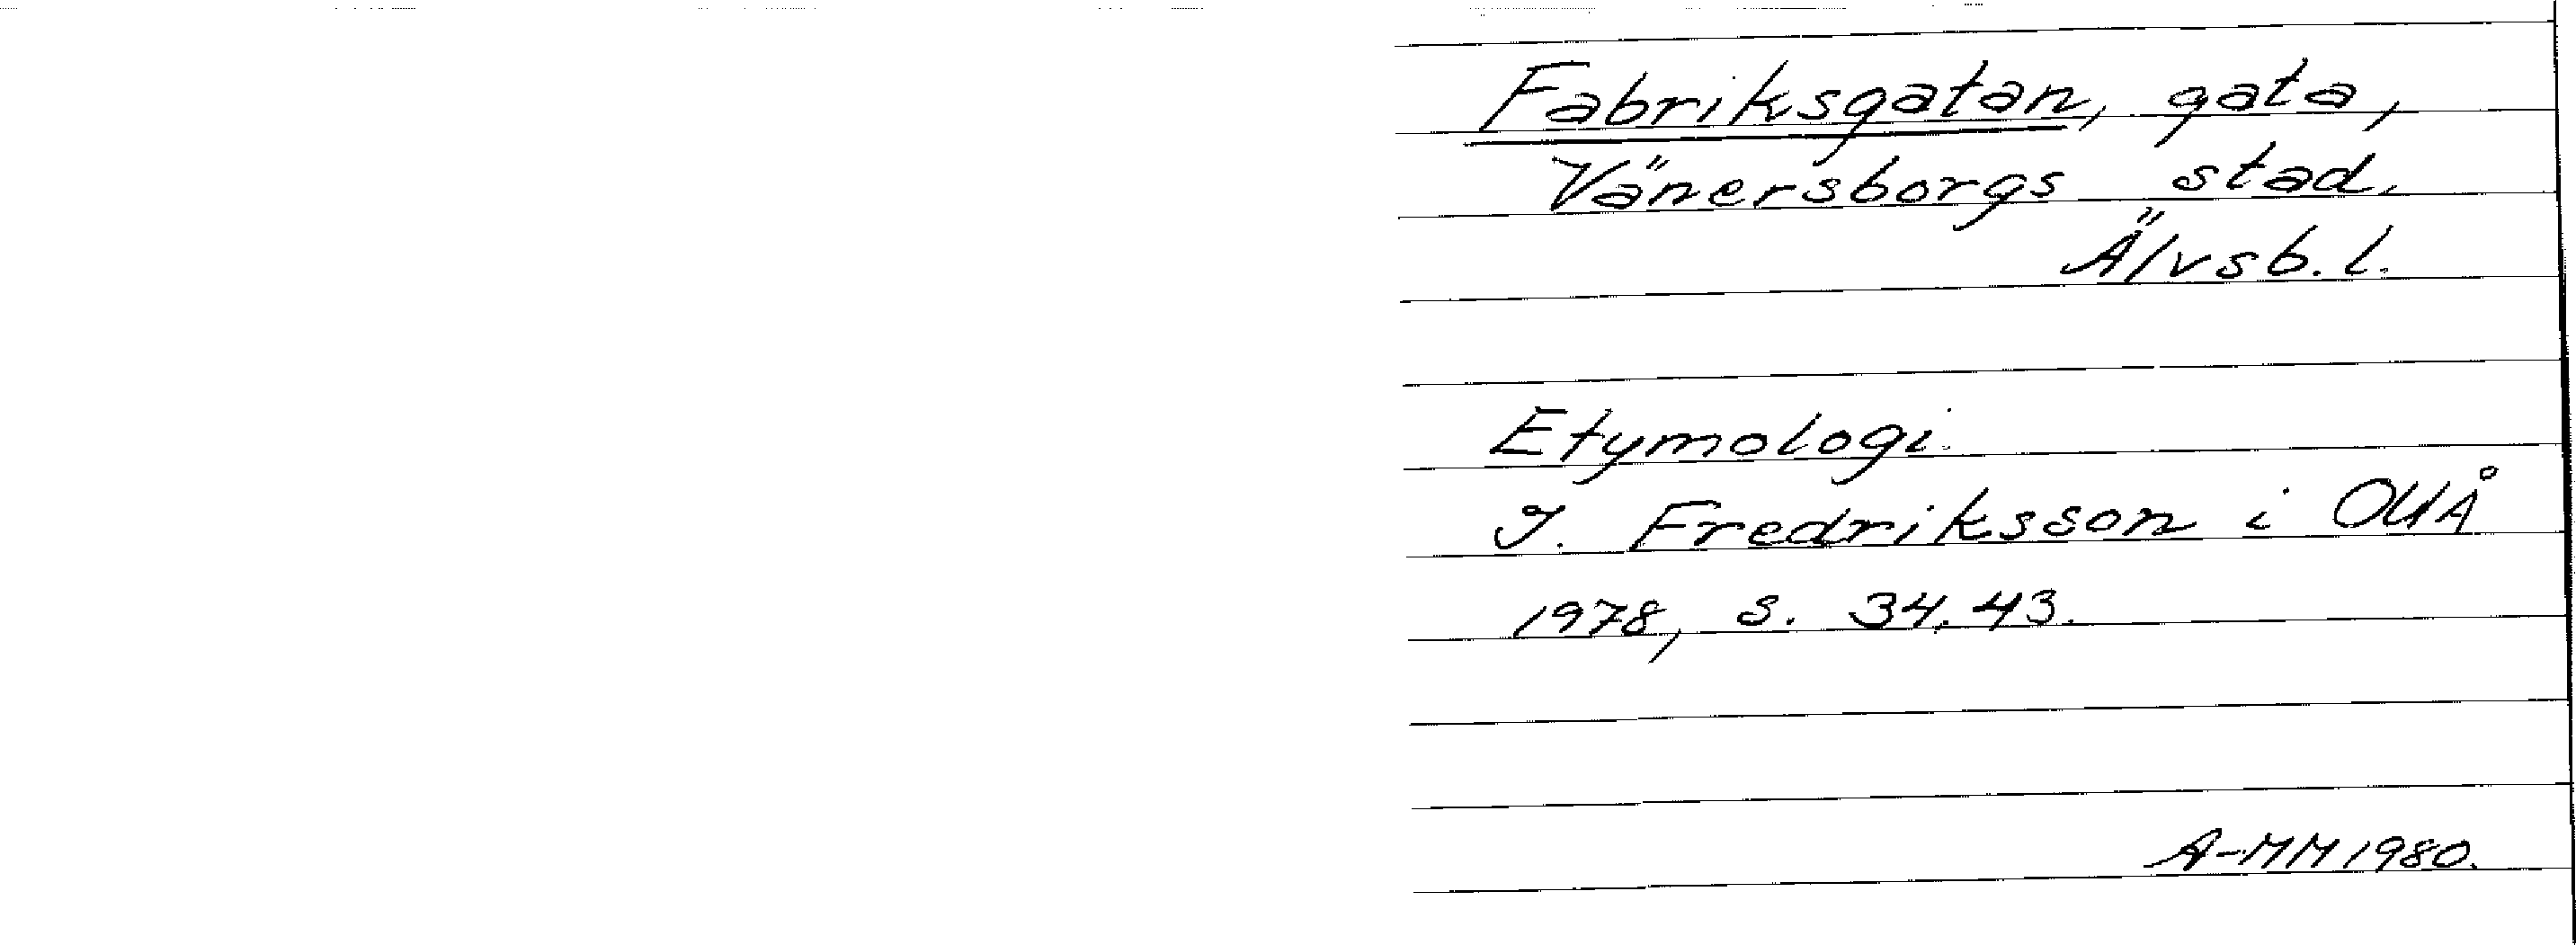 Fabriksgatan, gata,
Vänersborgs stad,
Älvsb. l.
Etymologi.
I. Fredriksson i OUÅ
1978, s. 34, 43.
A-MM 1980.